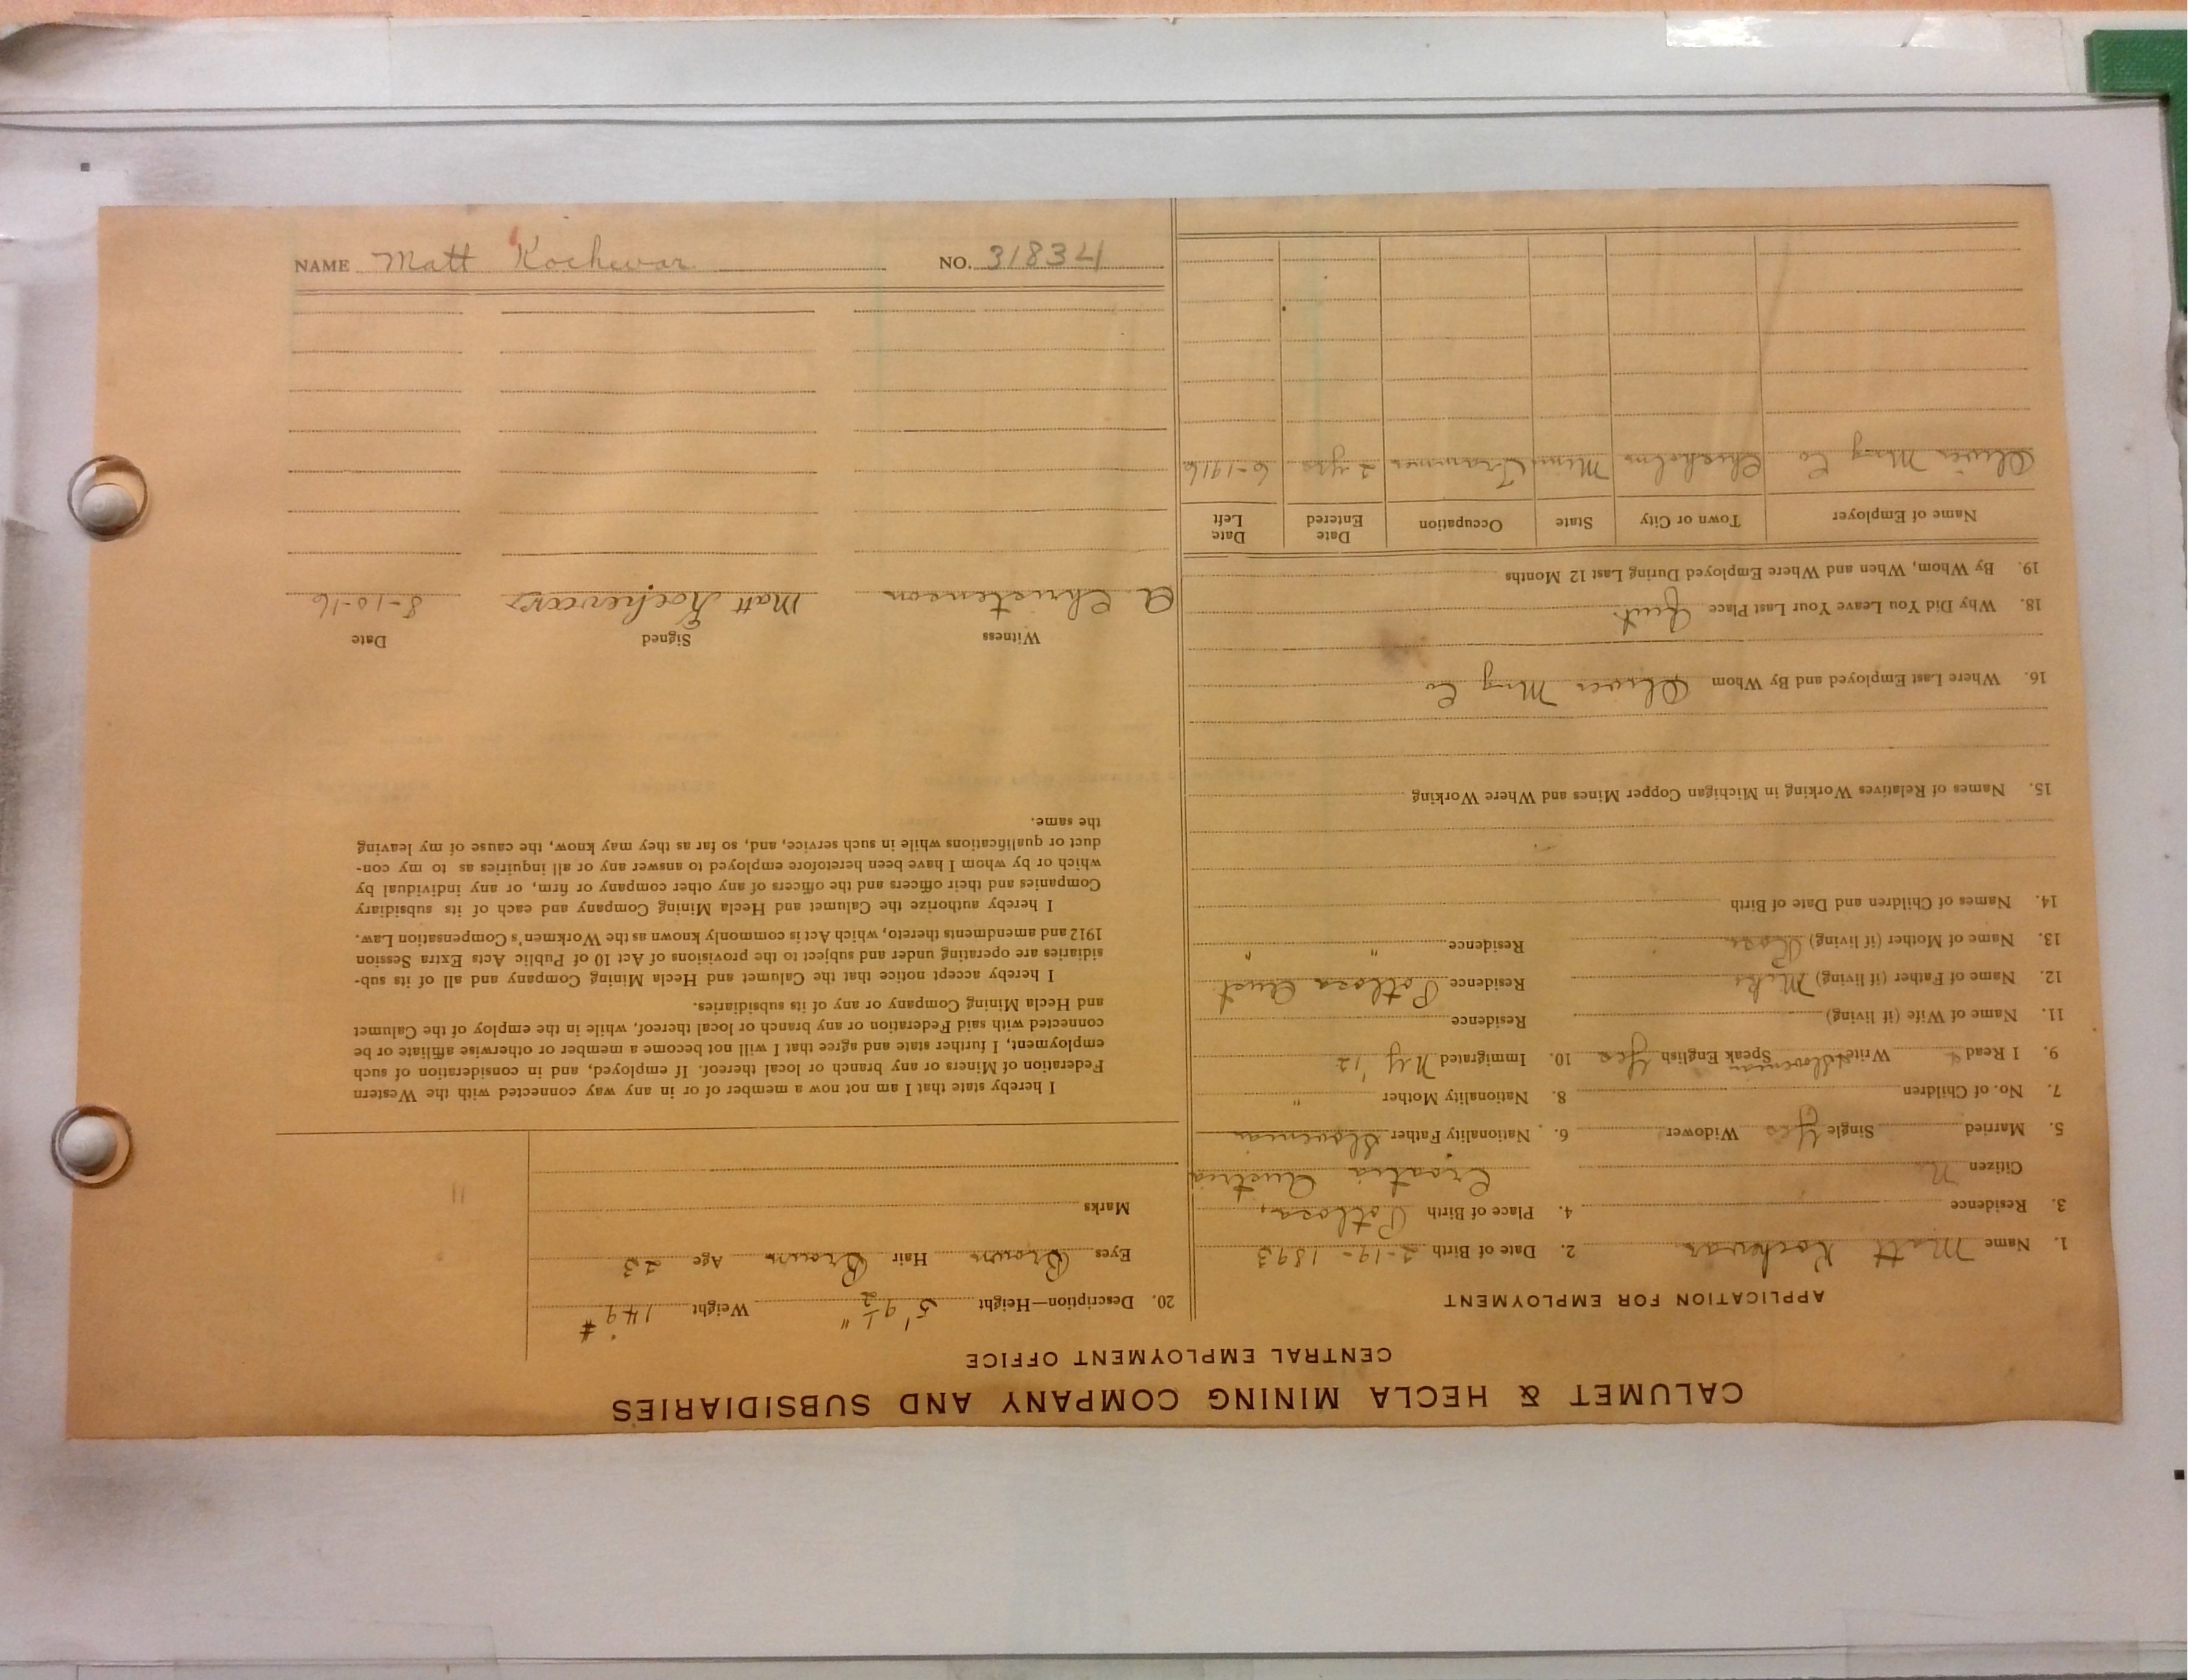 CALUMET & HECLA MINING COMPANY AND SUBSIDIARIES
CENTRAL EMPLOYMENT OFFICE
APPLICATION FOR EMPLOYMENT
1. Name Matt Kochevar 2. Date of Birth 2-19-1893
3. Residence 4. Place of Birth Potloza,
Citizen No Croatia Austria
5. Married Single Yes Widower 6. Nationality Father Slovenian
7. No. of Children 8. Nationality Mother "
9. I Read & Write Slovenian Speak English Yes 10. Immigrated N.Y. '12
11. Name of Wife (if living) Residence
12. Name of Father (if living) Mike Residence Potloza Aust
13. Name of Mother (if living) Rosa Residence " "
14. Names of Children and Date of Birth
15. Names of Relatives Working in Michigan Copper Mines and Where Working
16. Where Last Employed and By Whom Oliver Mng Co
18. Why Did You Leave Your Last Place Quit
19. By Whom, When and Where Employed During Last 12 Months
Name of Employer Town or City State Occupation Date Entered Date Left
Oliver Mng Co Chisholm Minn Trammer 2 yrs 6-1916
20. Description—Height 5' 9 1/2" Weight 149#
Eyes Brown Hair Brown Age 23
Marks
11
I hereby state that I am not now a member of or in any way connected with the Western
Federation of Miners or any branch or local thereof. If employed, and in consideration of such
employment, I further state and agree that I will not become a member or otherwise affiliate or be
connected with said Federation or any branch or local thereof, while in the employ of the Calumet
and Hecla Mining Company or any of its subsidiaries.
I hereby accept notice that the Calumet and Hecla Mining Company and all of its sub-
sidiaries are operating under and subject to the provisions of Act 10 of Public Acts Extra Session
1912 and amendments thereto, which Act is commonly known as the Workmen's Compensation Law.
I hereby authorize the Calumet and Hecla Mining Company and each of its subsidiary
Companies and their officers and the officers of any other company or firm, or any individual by
which or by whom I have been heretofore employed to answer any or all inquiries as to my con-
duct or qualifications while in such service, and, so far as they may know, the cause of my leaving
the same.
Witness Signed Date
A. Christenson Matt Kochevar 8-10-16
NAME Matt Kochevar NO. 31834